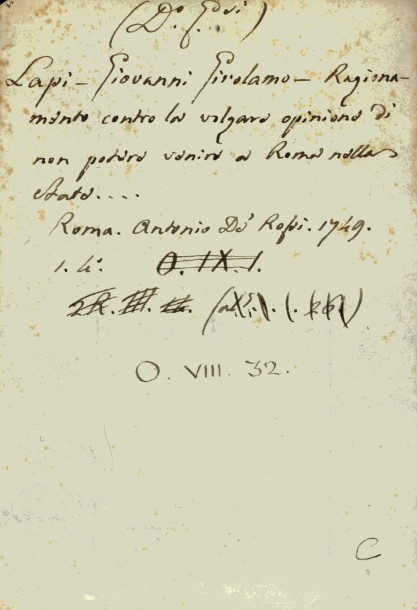 Lapi - Giovanni Girolamo - Ragiona-
mento contro la volgare opinione di
non potere venire a Roma nella
state....
Roma. Antonio De' Rossi. 1749.
1. 4°. O. IX. 1.
O. VIII. 32.
C